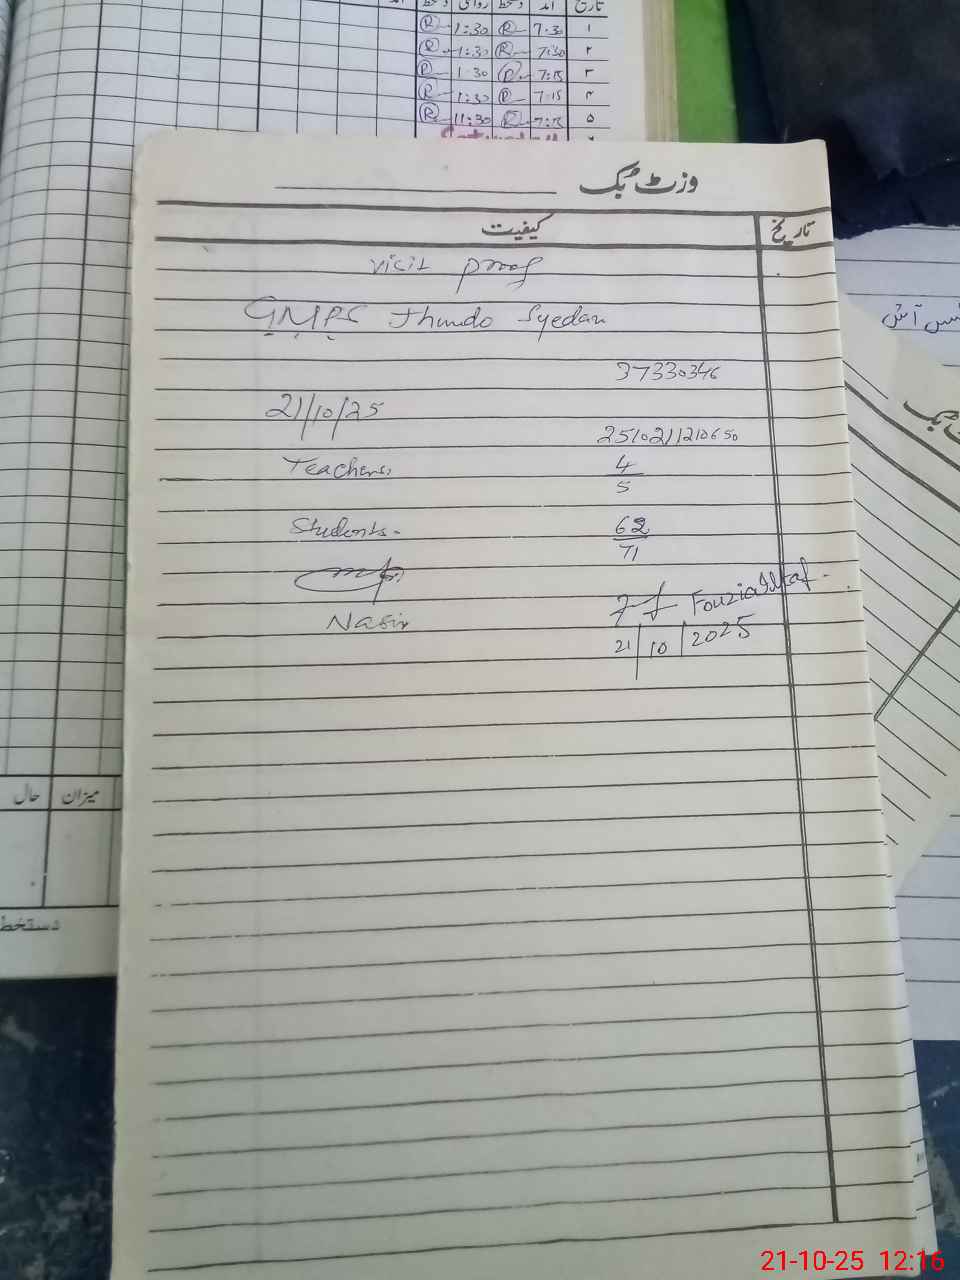 تاریخ آمد دستخط روانگی دستخط
۱ 7.30 R 1:30 R
۲ 7:30 R 1:30 R
۳ 7:15 R 1.30 R
۴ 7.15 R 1:30 R
۵ 7:15 R 11:30 R
وزٹ بک
کیفیت تاریخ
visit proof
GMPS Jhundo Syedan
37330346
21/10/25
2510211210650
Teachers. 4
5
Students- 62
71
Nasir
Fouzia Altaf
21/10/2025
میزان حال
دستخط
21-10-25 12:16